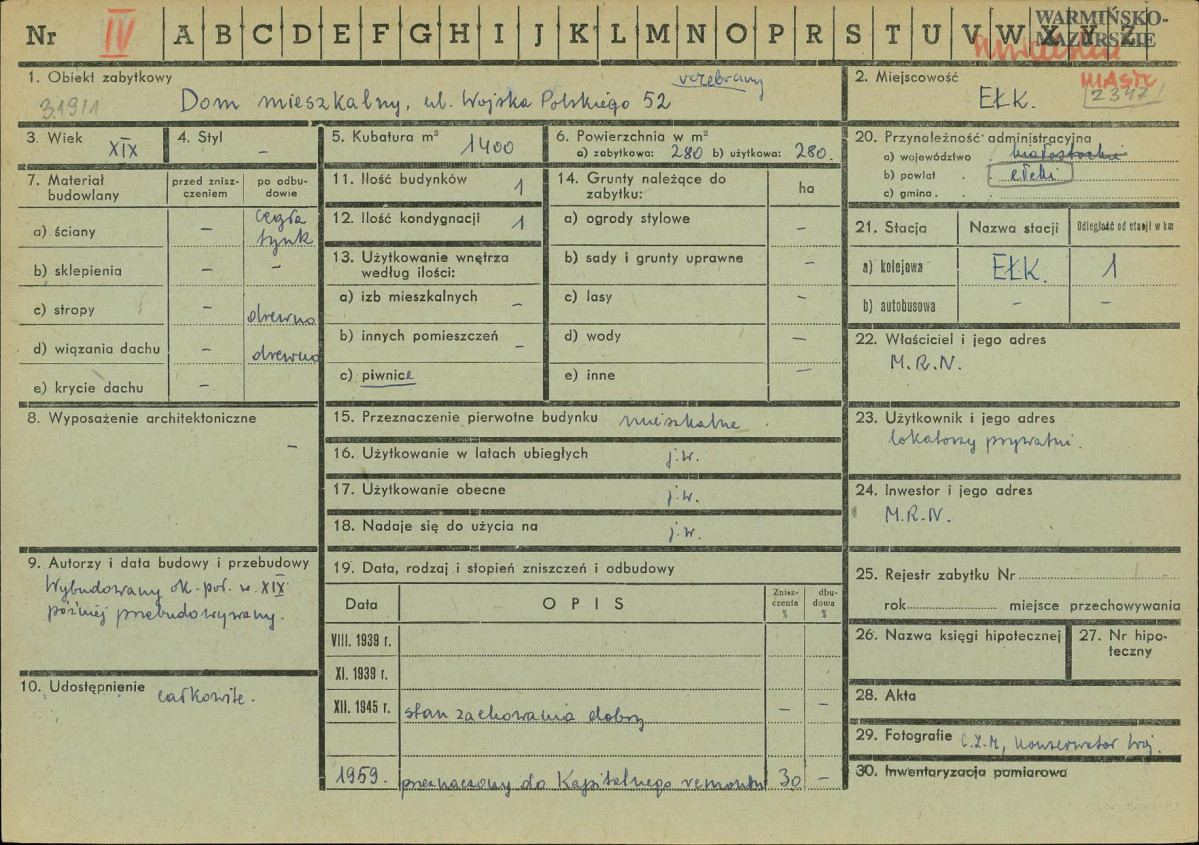 Nr IV A B C D E F G H I J K L M N O P R S T U V W X Y Z
WARMIŃSKO-
MAZURSKIE
1. Obiekt zabytkowy
rozebrany
3191/1
Dom mieszkalny, ul. Wojska Polskiego 52
2. Miejscowość
MIASTO
2347
EŁK.
3. Wiek XIX
4. Styl –
5. Kubatura m³ 1400
6. Powierzchnia w m²
a) zabytkowa: 280 b) użytkowa: 280.
7. Materiał budowlany
przed zniszczeniem
po odbudowie
a) ściany – cegła tynk
b) sklepienia – –
c) stropy – drewno
d) wiązania dachu – drewno
e) krycie dachu –
8. Wyposażenie architektoniczne
–
9. Autorzy i data budowy i przebudowy
Wybudowany ok. poł. w. XIX
później przebudowywany.
10. Udostępnienie całkowite.
11. Ilość budynków 1
12. Ilość kondygnacji 1
13. Użytkowanie wnętrza
według ilości:
a) izb mieszkalnych –
b) innych pomieszczeń –
c) piwnice
14. Grunty należące do
zabytku:
ha
a) ogrody stylowe –
b) sady i grunty uprawne –
c) lasy –
d) wody –
e) inne –
15. Przeznaczenie pierwotne budynku mieszkalne.
16. Użytkowanie w latach ubiegłych j.w.
17. Użytkowanie obecne j.w.
18. Nadaje się do użycia na j.w.
19. Data, rodzaj i stopień zniszczeń i odbudowy
Data
OPIS
Zniszczenia %
dbudowa %
VIII. 1939 r.
XI. 1939 r.
XII. 1945 r. stan zachowania dobry – –
1959. przeznaczony do kapitalnego remontu 30 –
20. Przynależność administracyjna
a) województwo białostockie
b) powiat ełcki
c) gmina
21. Stacja
Nazwa stacji
Odległość od stacji w km
a) kolejowa EŁK. 1
b) autobusowa – –
22. Właściciel i jego adres
M.R.N.
23. Użytkownik i jego adres
lokatorzy prywatni.
24. Inwestor i jego adres
M.R.N.
25. Rejestr zabytku Nr
rok miejsce przechowywania
26. Nazwa księgi hipotecznej
27. Nr hipoteczny
28. Akta
29. Fotografie Konserwator Woj.
30. Inwentaryzacja pomiarowa